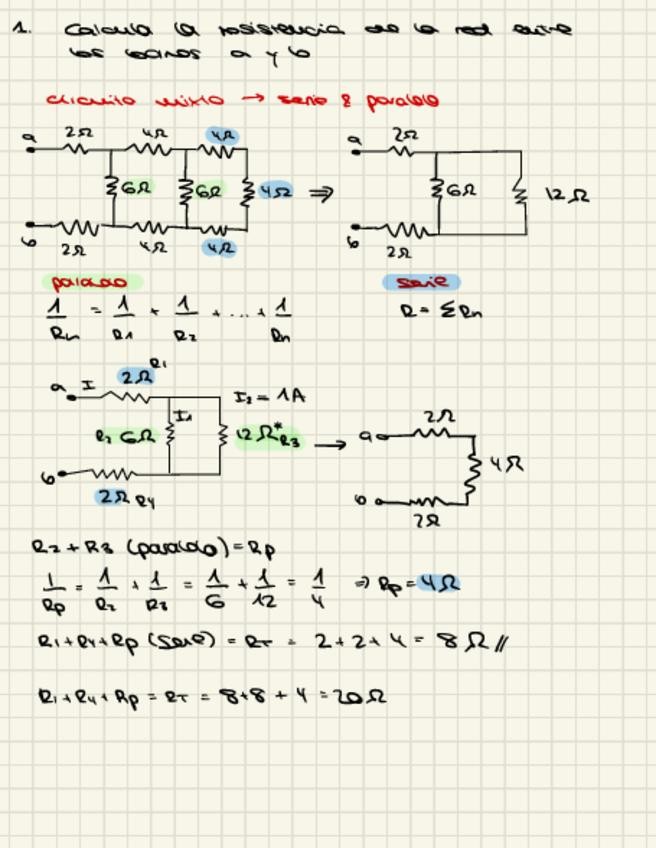 1. Calcula la resistencia de la red entre
los bornos a y b
circuito mixto → serie & paralelo
a 2Ω 4Ω 4Ω
6Ω 6Ω 4Ω ⇒
b 2Ω 4Ω 4Ω
a 2Ω
6Ω 12Ω
b 2Ω
paralelo
1/Rn = 1/R1 + 1/R2 + ... + 1/Rn
serie
R = ΣRn
a I 2Ω R1 I2 = 1A
R2 6Ω I1 12Ω* R3 →
b 2Ω R4
a 2Ω
4Ω
b 2Ω
R2 + R3 (paralelo) = Rp
1/Rp = 1/R2 + 1/R3 = 1/6 + 1/12 = 1/4 ⇒ Rp = 4Ω
R1 + R4 + Rp (serie) = RT = 2 + 2 + 4 = 8Ω //
R1 + R4 + Rp = RT = 8 + 8 + 4 = 20Ω